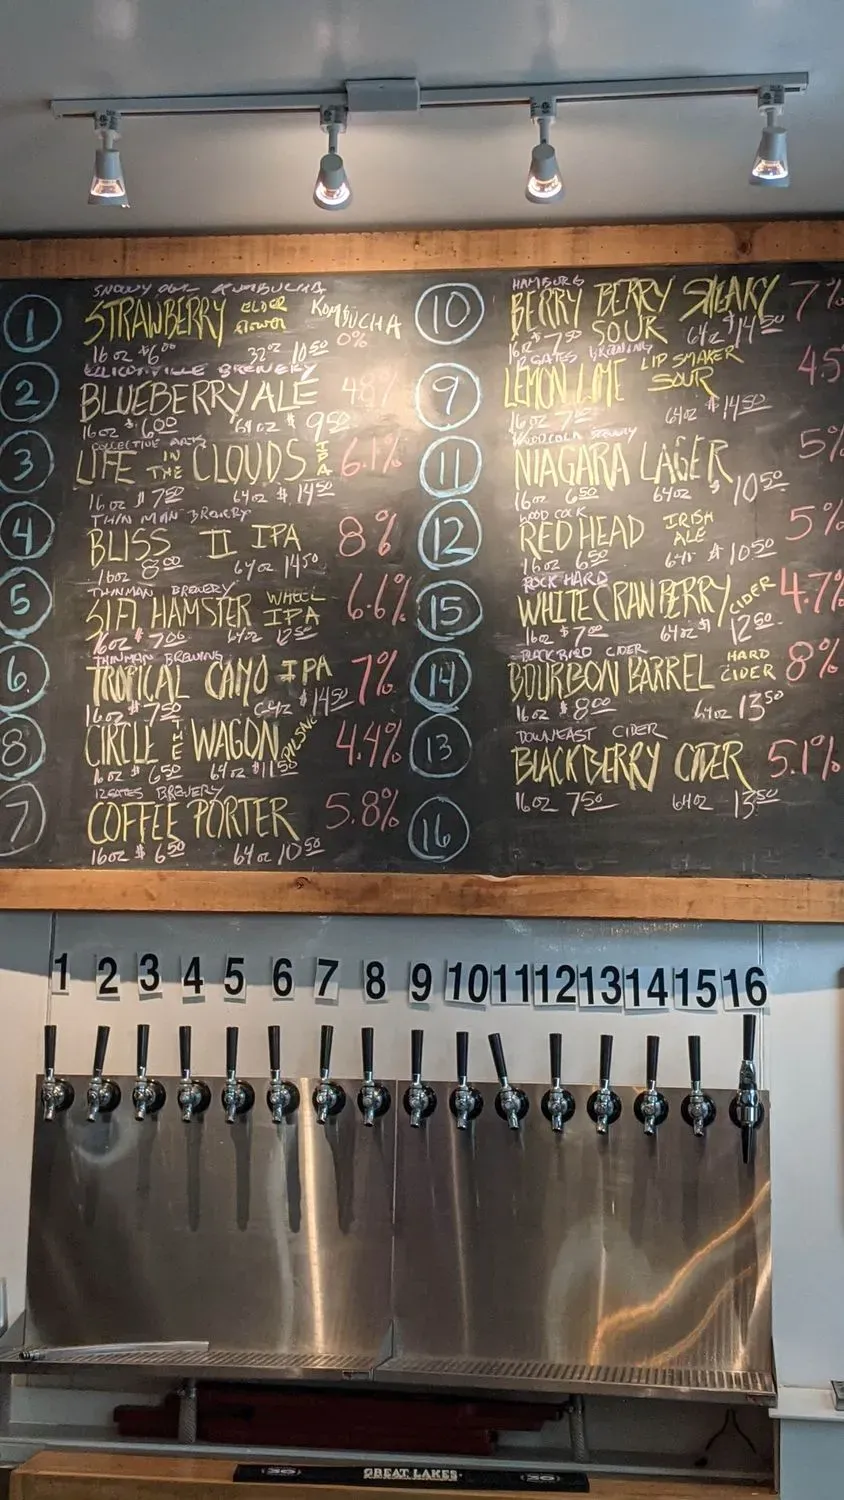 1
STRAWBERRY ELDER FLOWER KOMBUCHA
0%
16 oz $6.00 32 oz 10.50
2
ELLICOTTVILLE BREWERY
BLUEBERRY ALE 4.8%
16 oz $6.00 64 oz $9.50
3
COLLECTIVE ARTS
LIFE IN THE CLOUDS IPA 6.1%
16 oz $7.50 64 oz $14.50
4
THIN MAN BREWERY
BLISS II IPA 8%
16 oz 8.00 64 oz 14.50
5
THINMAN BREWERY
HAMSTER WHEEL IPA 6.6%
16 oz $7.00 64 oz 12.50
6
THINMAN BREWING
TROPICAL CAMO IPA 7%
16 oz $7.50 64 oz $14.50
8
CIRCLE THE WAGON 4.4%
16 oz $6.50 64 oz $11.50
7
12GATES BREWERY
COFFEE PORTER 5.8%
16 oz $6.50 64 oz 10.50
10
HAMBURG
BERRY BERRY SNEAKY SOUR 7%
16 oz $7.50 64 oz $14.50
9
LEMON LIME LIP SMAKER SOUR 4.5
16 oz 7.00 64 oz $14.50
11
NIAGARA LAGER 5%
16 oz 6.50 64 oz $10.50
12
WOOD COCK
REDHEAD IRISH ALE 5%
16 oz 6.50 64 oz $10.50
15
ROCK HARD
WHITE CRANBERRY CIDER 4.7%
16 oz $7.00 64 oz $12.50
14
BLACKBIRD CIDER
BOURBON BARREL HARD CIDER 8%
16 oz $8.00 64 oz 13.50
13
DOWNEAST CIDER
BLACKBERRY CIDER 5.1%
16 oz 7.50 64 oz 13.50
16
1 2 3 4 5 6 7 8 9 10 11 12 13 14 15 16
GREAT LAKES